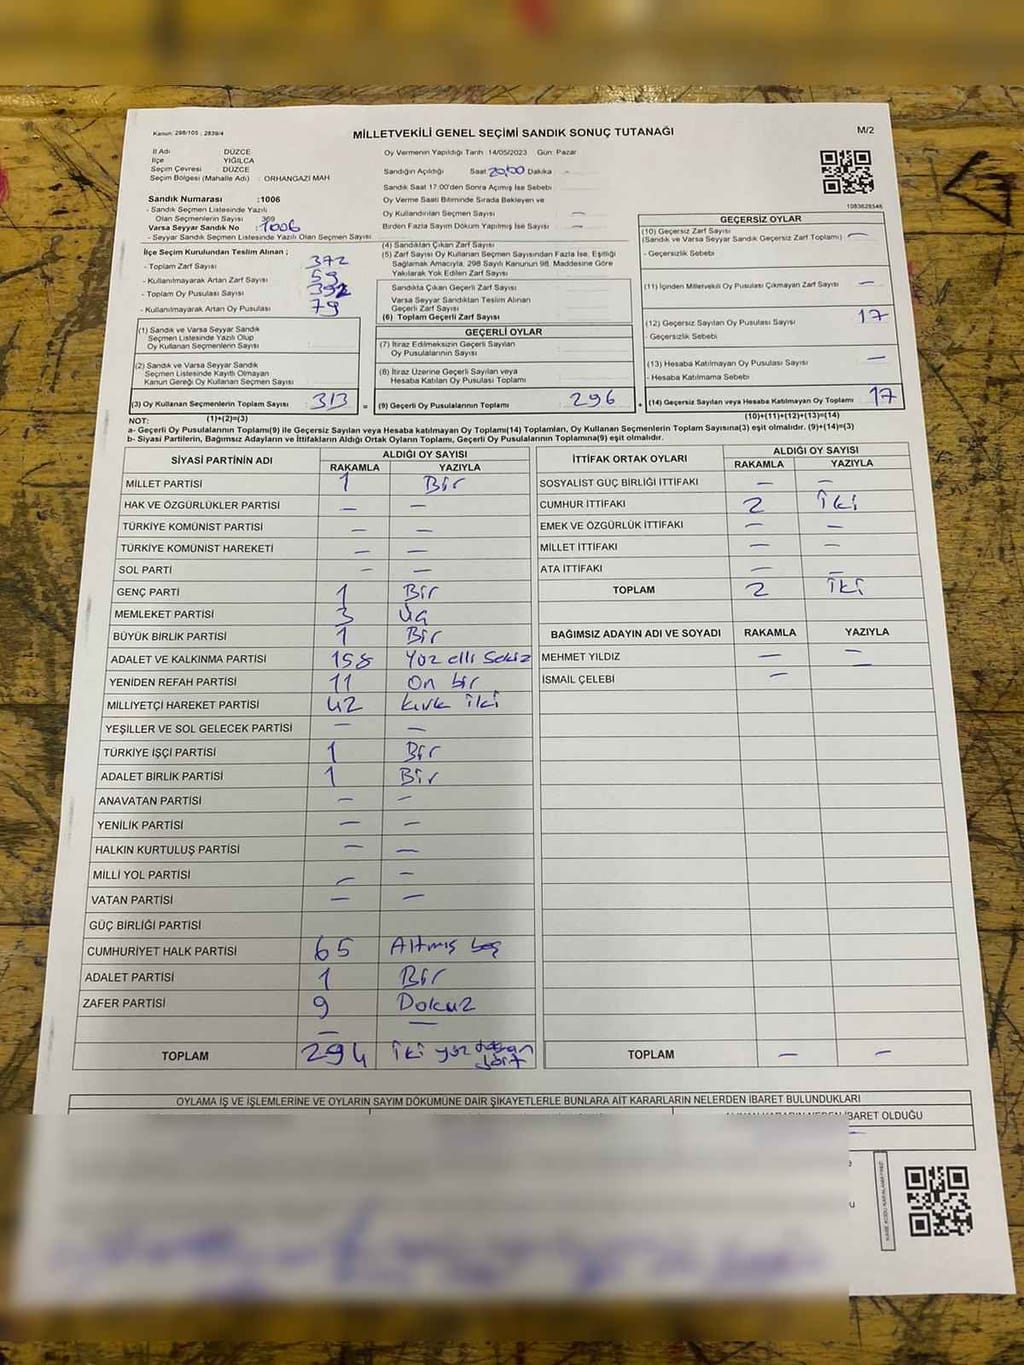 Kanun: 298/105 ; 2839/4
MİLLETVEKİLİ GENEL SEÇİMİ SANDIK SONUÇ TUTANAĞI
M/2
İl Adı DÜZCE
İlçe YIĞILCA
Seçim Çevresi : DÜZCE
Seçim Bölgesi (Mahalle Adı) : ORHANGAZI MAH
Sandık Numarası :1006
- Sandık Seçmen Listesinde Yazılı
Olan Seçmenlerin Sayısı 369
Varsa Seyyar Sandık No : 1006
- Seyyar Sandık Seçmen Listesinde Yazılı Olan Seçmen Sayısı
Oy Vermenin Yapıldığı Tarih :14/05/2023 Gün: Pazar
Sandığın Açıldığı Saat 20:00 Dakika -
Sandık Saat 17:00'den Sonra Açımış İse Sebebi
Oy Verme Saati Bitiminde Sırada Bekleyen ve
Oy Kullandırılan Seçmen Sayısı —
Birden Fazla Sayım Döküm Yapılmış İse Sayısı —
1083628546
İlçe Seçim Kurulundan Teslim Alınan ;
- Toplam Zarf Sayısı 372
- Kullanılmayarak Artan Zarf Sayısı 59
- Toplam Oy Pusulası Sayısı 392
- Kullanılmayarak Artan Oy Pusulası 79
(1) Sandık ve Varsa Seyyar Sandık
Seçmen Listesinde Yazılı Olup
Oy Kullanan Seçmenlerin Sayısı
(2) Sandık ve Varsa Seyyar Sandık
Seçmen Listesinde Kayıtlı Olmayan
Kanun Gereği Oy Kullanan Seçmen Sayısı
(3) Oy Kullanan Seçmenlerin Toplam Sayısı 313 =
(1)+(2)=(3)
(4) Sandıktan Çıkan Zarf Sayısı
(5) Zarf Sayısı Oy Kullanan Seçmen Sayısından Fazla İse, Eşitliği
Sağlamak Amacıyla, 298 Sayılı Kanunun 98. Maddesine Göre
Yakılarak Yok Edilen Zarf Sayısı
Sandıkta Çıkan Geçerli Zarf Sayısı
Varsa Seyyar Sandıktan Teslim Alınan
Geçerli Zarf Sayısı
(6) Toplam Geçerli Zarf Sayısı
GEÇERLİ OYLAR
(7) İtiraz Edilmeksizin Geçerli Sayılan
Oy Pusulalarının Sayısı
(8) İtiraz Üzerine Geçerli Sayılan veya
Hesaba Katılan Oy Pusulası Toplamı
(9) Geçerli Oy Pusulalarının Toplamı 296 +
GEÇERSİZ OYLAR
(10) Geçersiz Zarf Sayısı
(Sandık ve Varsa Seyyar Sandık Geçersiz Zarf Toplamı) —
- Geçersizlik Sebebi
(11) İçinden Milletvekili Oy Pusulası Çıkmayan Zarf Sayısı —
(12) Geçersiz Sayılan Oy Pusulası Sayısı 17
- Geçersizlik Sebebi
(13) Hesaba Katılmayan Oy Pusulası Sayısı —
- Hesaba Katılmama Sebebi
(14) Geçersiz Sayılan veya Hesaba Katılmayan Oy Toplamı 17
(10)+(11)+(12)+(13)=(14)
NOT:
a- Geçerli Oy Pusulalarının Toplamı(9) ile Geçersiz Sayılan veya Hesaba katılmayan Oy Toplamı(14) Toplamları, Oy Kullanan Seçmenlerin Toplam Sayısına(3) eşit olmalıdır. (9)+(14)=(3)
b- Siyasi Partilerin, Bağımsız Adayların ve İttifakların Aldığı Ortak Oyların Toplamı, Geçerli Oy Pusulalarının Toplamına(9) eşit olmalıdır.
SİYASİ PARTİNİN ADI ALDIĞI OY SAYISI
RAKAMLA YAZIYLA
MİLLET PARTİSİ 1 Bir
HAK VE ÖZGÜRLÜKLER PARTİSİ — —
TÜRKİYE KOMÜNİST PARTİSİ — —
TÜRKİYE KOMÜNİST HAREKETİ — —
SOL PARTİ — —
GENÇ PARTİ 1 Bir
MEMLEKET PARTİSİ 3 Üç
BÜYÜK BİRLİK PARTİSİ 1 Bir
ADALET VE KALKINMA PARTİSİ 158 Yüz elli Sekiz
YENİDEN REFAH PARTİSİ 11 On bir
MİLLİYETÇİ HAREKET PARTİSİ 42 kırk iki
YEŞİLLER VE SOL GELECEK PARTİSİ — —
TÜRKİYE İŞÇİ PARTİSİ 1 Bir
ADALET BİRLİK PARTİSİ 1 Bir
ANAVATAN PARTİSİ — —
YENİLİK PARTİSİ — —
HALKIN KURTULUŞ PARTİSİ — —
MİLLİ YOL PARTİSİ — —
VATAN PARTİSİ — —
GÜÇ BİRLİĞİ PARTİSİ
CUMHURİYET HALK PARTİSİ 65 Altmış beş
ADALET PARTİSİ 1 Bir
ZAFER PARTİSİ 9 Dokuz
— —
TOPLAM 294 iki yüz doksan dört
İTTİFAK ORTAK OYLARI ALDIĞI OY SAYISI
RAKAMLA YAZIYLA
SOSYALİST GÜÇ BİRLİĞİ İTTİFAKI — —
CUMHUR İTTİFAKI 2 İki
EMEK VE ÖZGÜRLÜK İTTİFAKI — —
MİLLET İTTİFAKI — —
ATA İTTİFAKI — —
TOPLAM 2 İki
BAĞIMSIZ ADAYIN ADI VE SOYADI RAKAMLA YAZIYLA
MEHMET YILDIZ — —
İSMAİL ÇELEBİ — —
TOPLAM — —
OYLAMA İŞ VE İŞLEMLERİNE VE OYLARIN SAYIM DÖKÜMÜNE DAİR ŞİKAYETLERLE BUNLARA AİT KARARLARIN NELERDEN İBARET BULUNDUKLARI
İBARET OLDUĞU